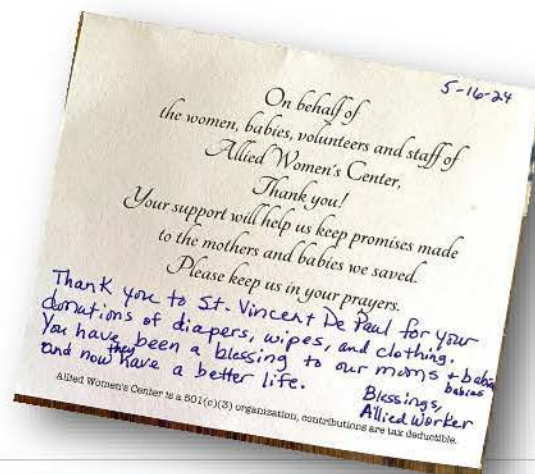 5-16-24
On behalf of
the women, babies, volunteers and staff of
Allied Women's Center,
Thank you!
Your support will help us keep promises made
to the mothers and babies we saved.
Please keep us in your prayers.
Thank you to St. Vincent De Paul for your
donations of diapers, wipes, and clothing.
You have been a blessing to our moms + babies
babies
and now they have a better life.
Blessings,
Allied Worker
Allied Women's Center is a 501(c)(3) organization, contributions are tax deductible.